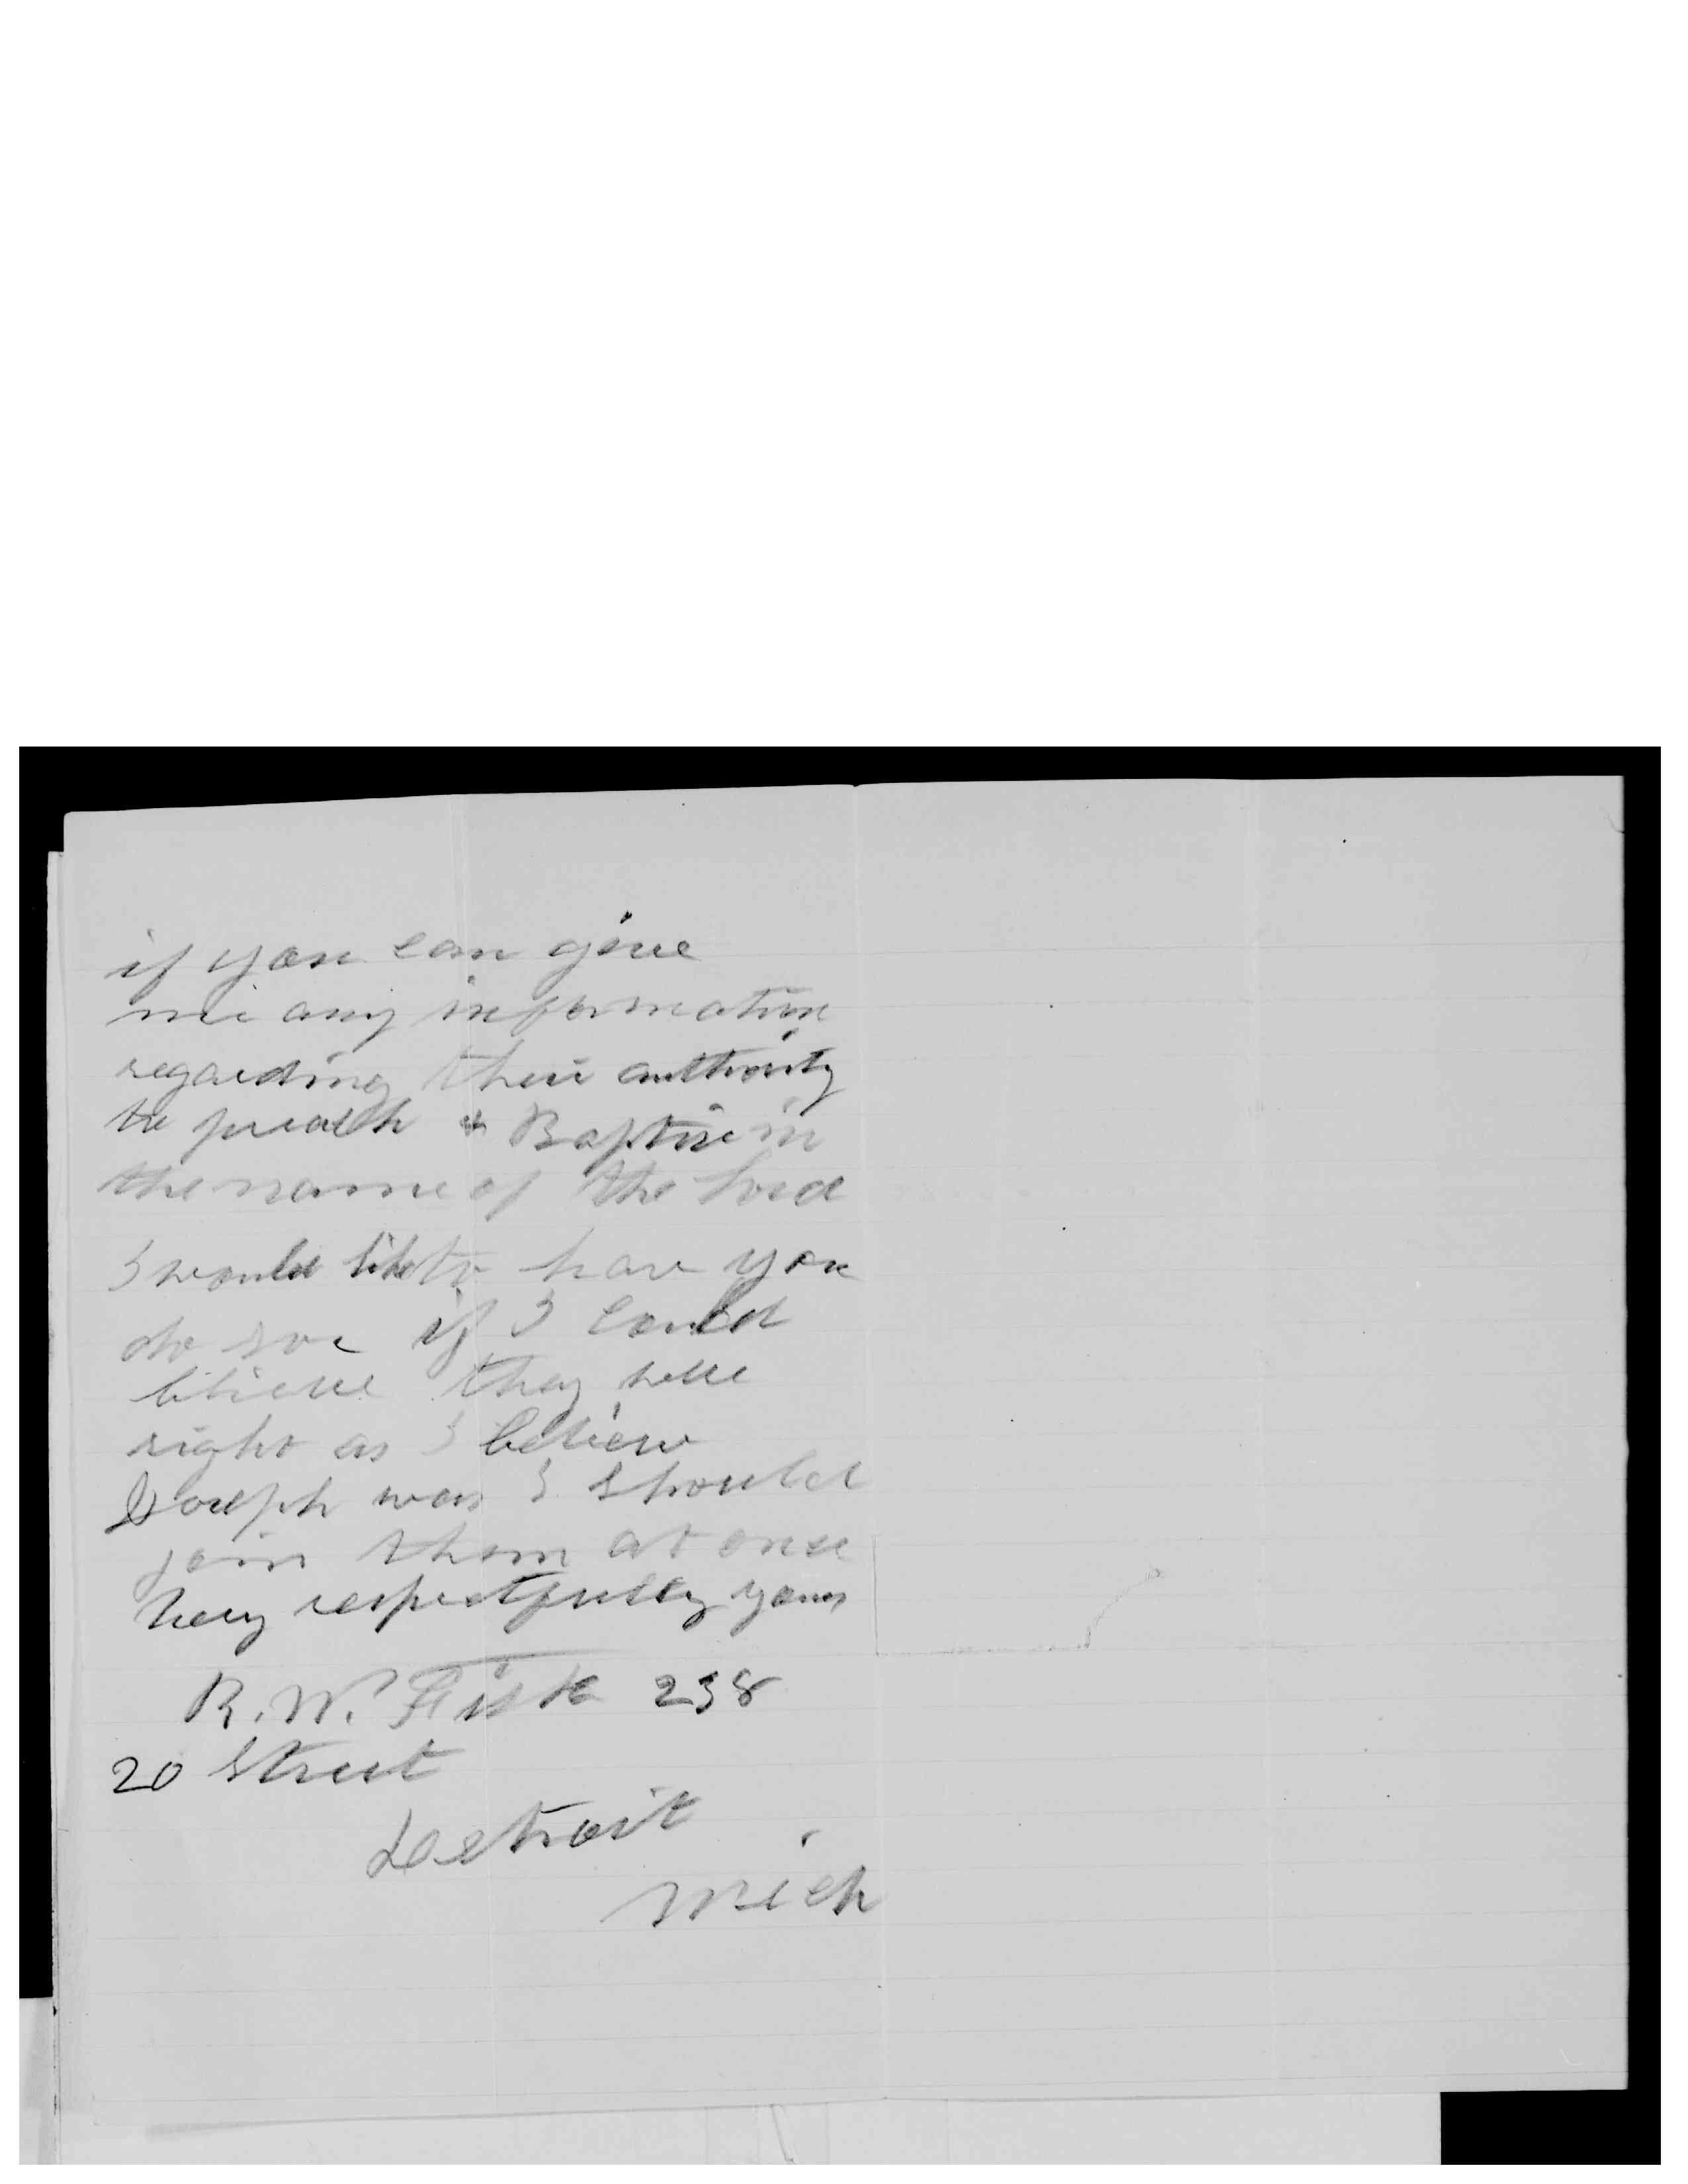 if you can give
me any information
regarding their authority
to preach & Baptise in
the name of the Lord
I would like to have you
do so if I could
believe they were
right as I believe
Joseph was I should
join them at once
Very respectfully yours
R. W. Fisk 238
20 Street
Detroit
Mich